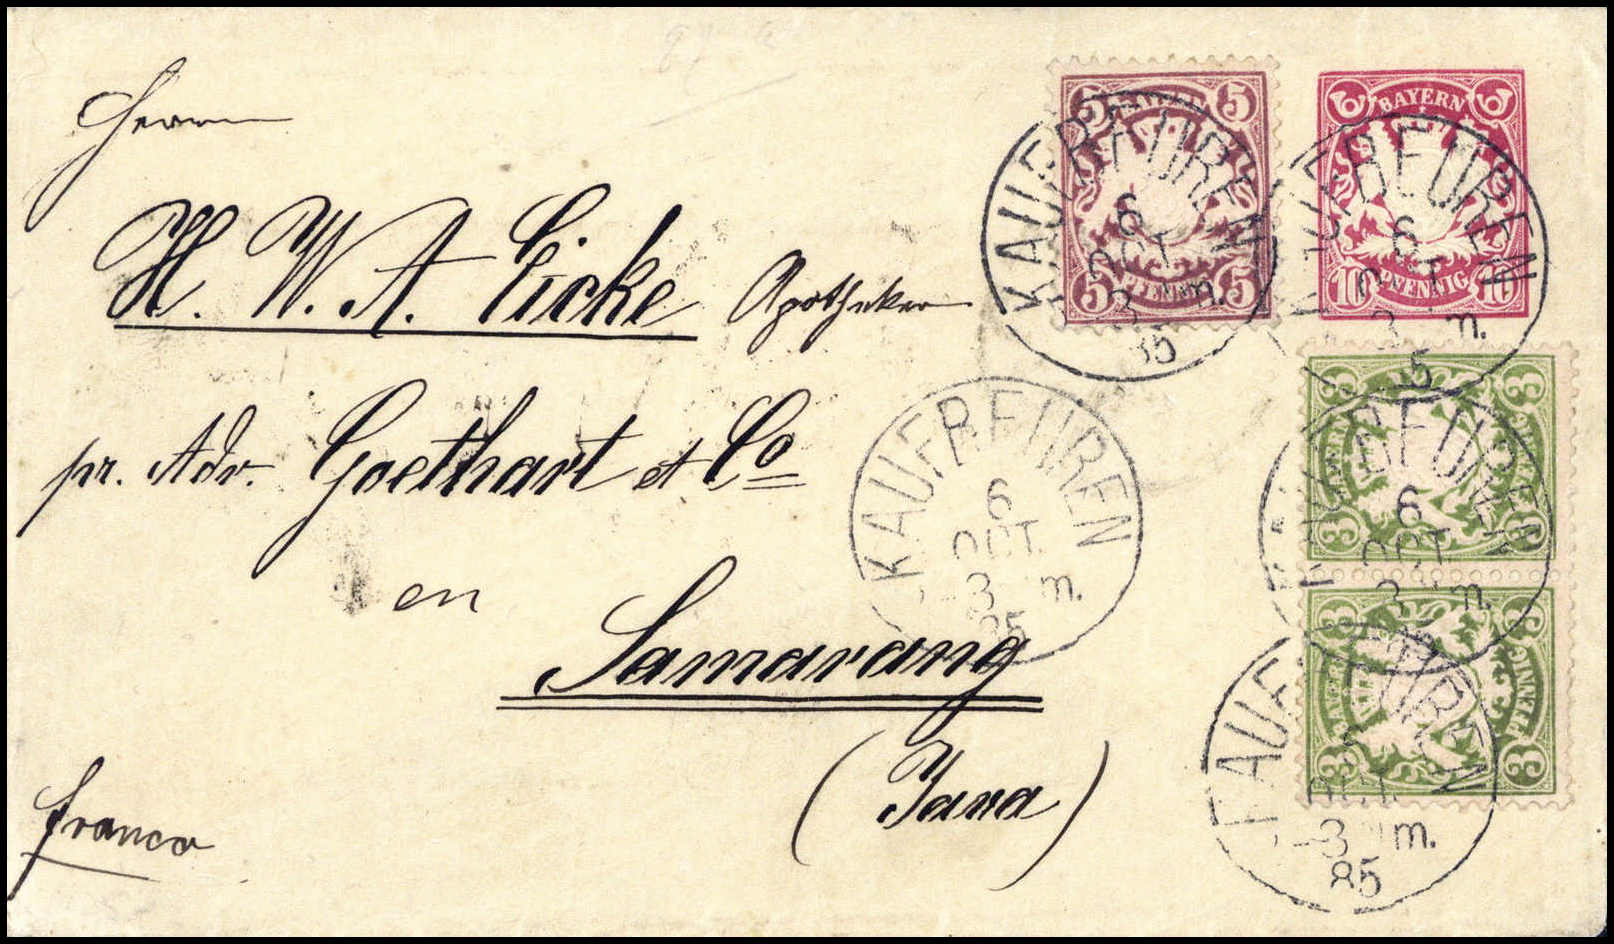 Herrn
H. W. A. Eicke Apotheker
pr. Adr. Goethart et Co
en
Samarang
(Java)
franco
5 BAYERN 5
5 PFENNIG 5
BAYERN
10 PFENNIG 10
3 BAYERN 3
3 PFENNIG 3
3 BAYERN 3
3 PFENNIG 3
KAUFBEUREN
6
OCT.
3 m.
85
KAUFBEUREN
6
OCT.
3 m.
85
KAUFBEUREN
6
OCT.
3 m.
85
KAUFBEUREN
6
OCT.
3 m.
KAUFBEUREN
OCT.
3 m.
85